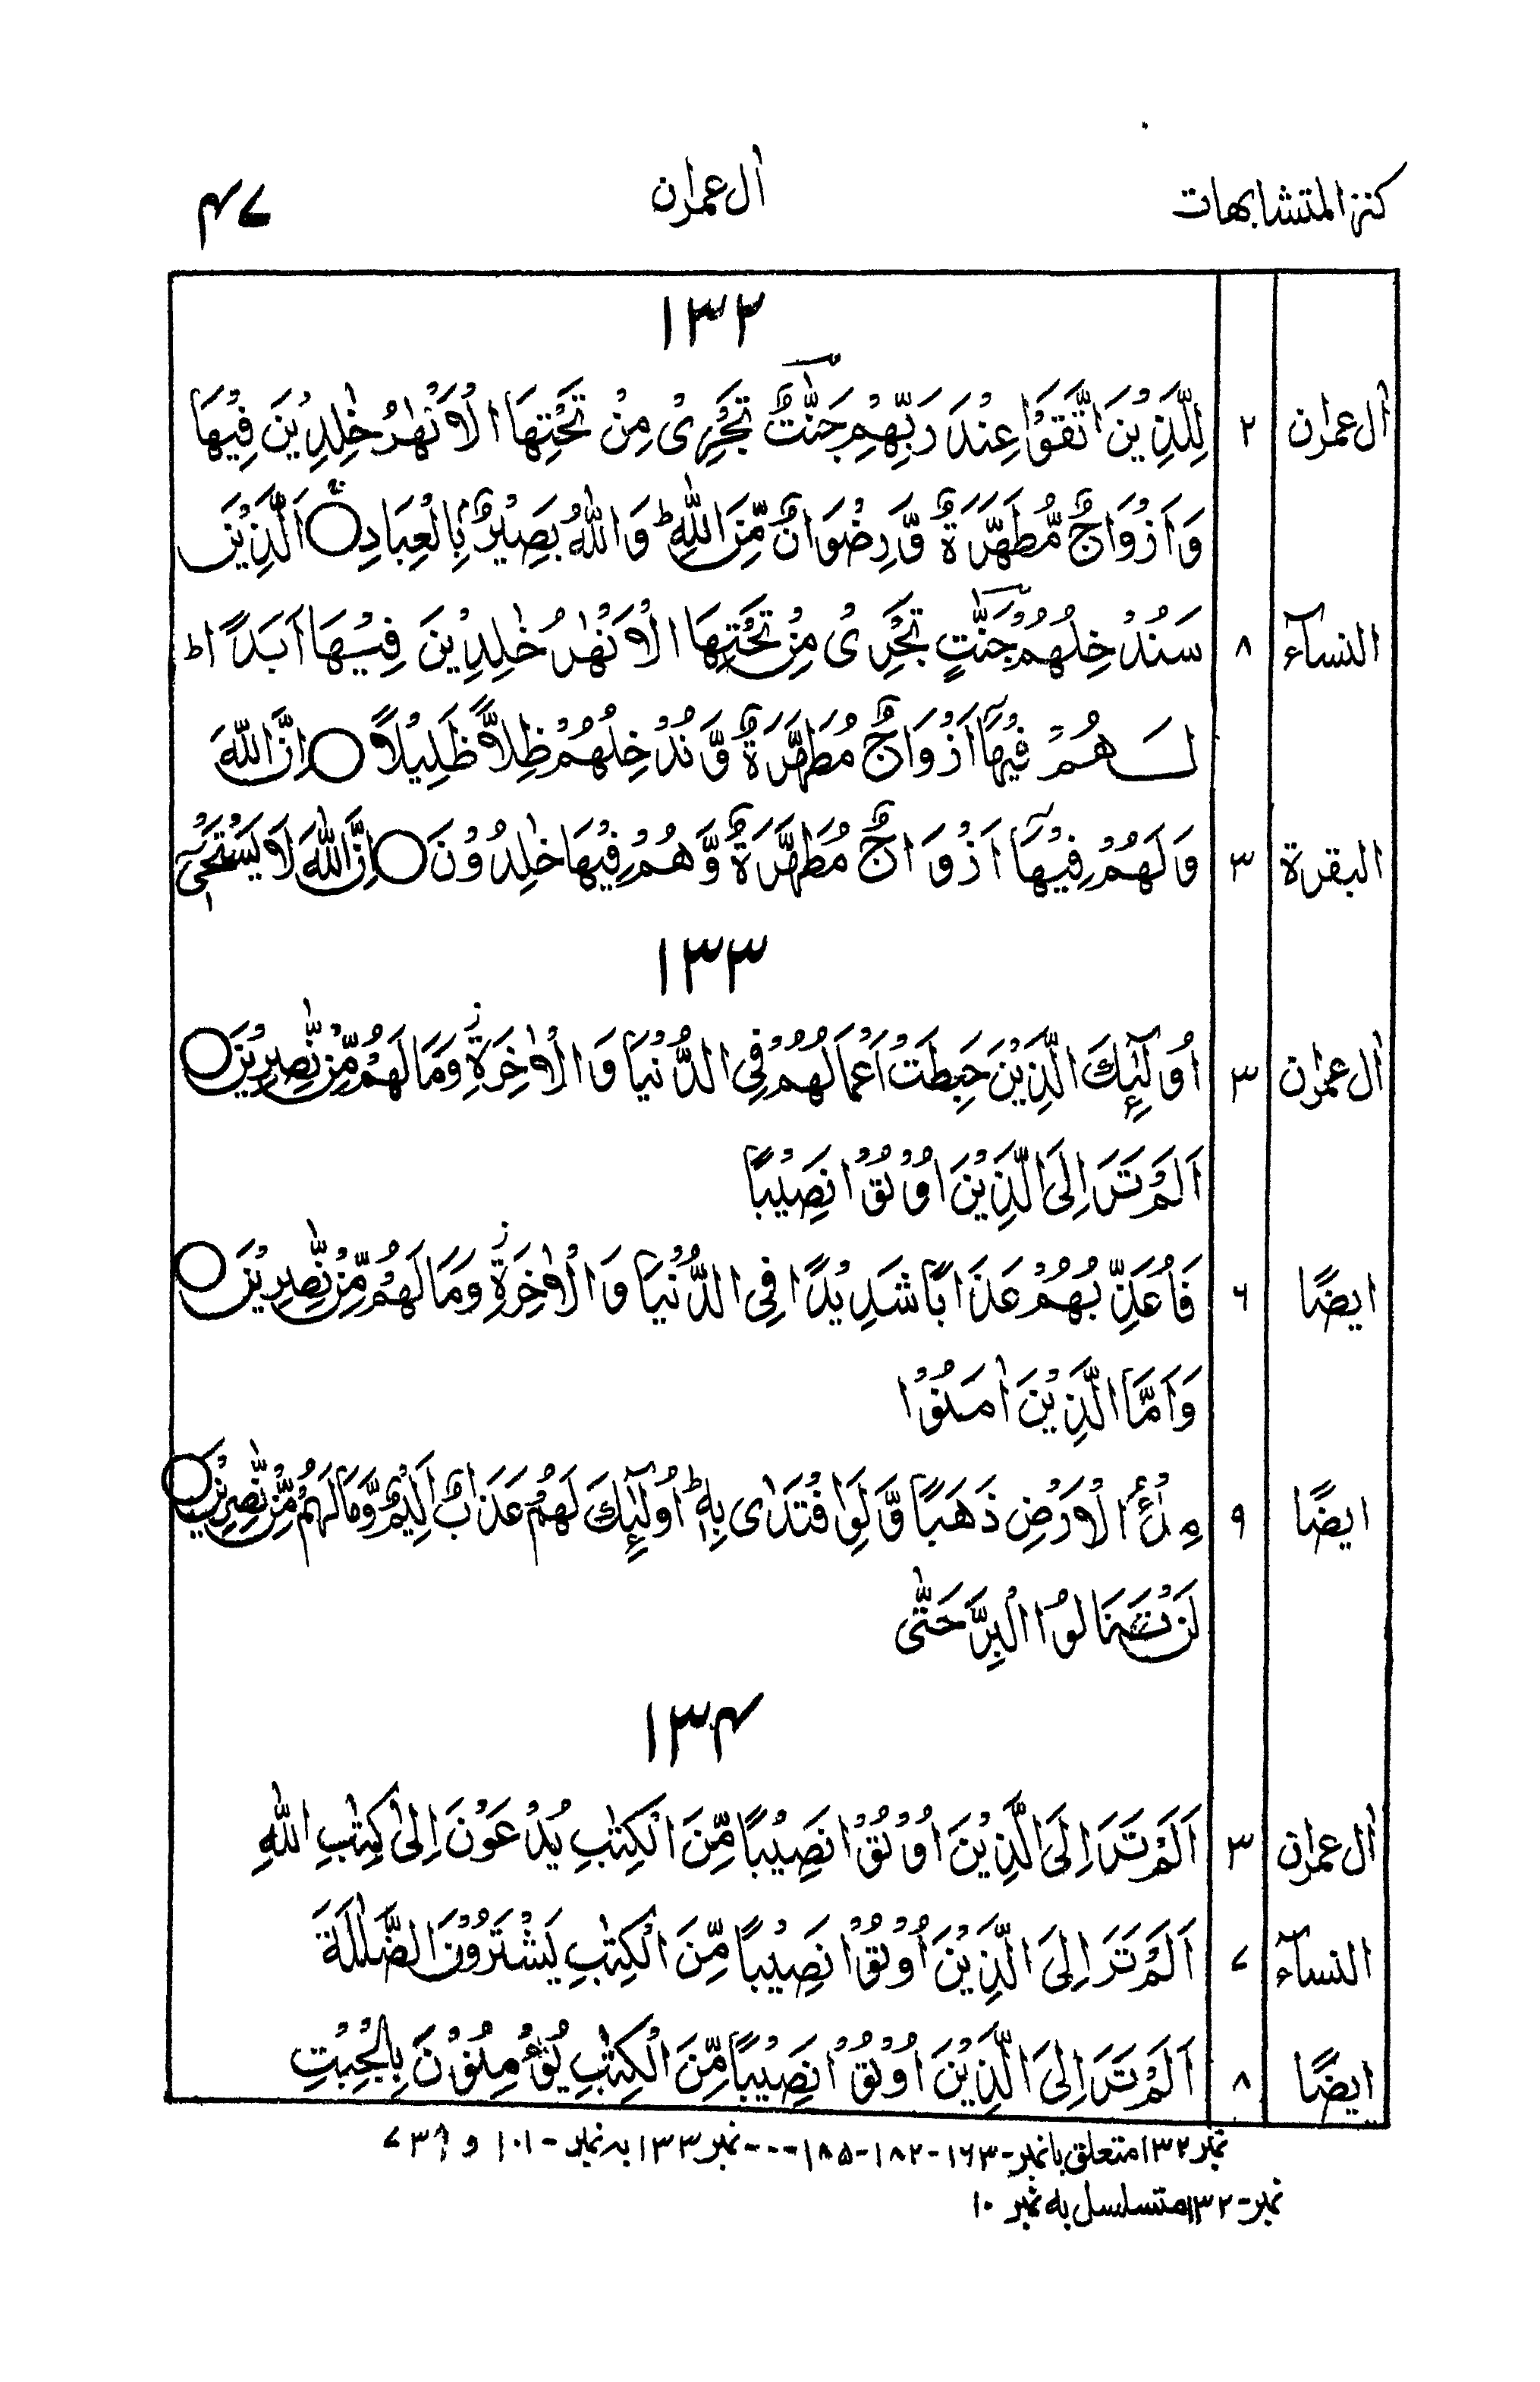 كنز المتشابهات
اٰل عمرٰن
۴۷
۱۳۲
اٰل عمرٰن ۲ لِلَّذِيْنَ اتَّقَوْا عِنْدَ رَبِّهِمْ جَنّٰتٌ تَجْرِىْ مِنْ تَحْتِهَا الْاَنْهٰرُ خٰلِدِيْنَ فِيْهَا
وَاَزْوَاجٌ مُّطَهَّرَةٌ وَّرِضْوَانٌ مِّنَ اللّٰهِ ؕ وَاللّٰهُ بَصِيْرٌۢ بِالْعِبَادِ ○ اَلَّذِيْنَ
النسآء ۸ سَنُدْخِلُهُمْ جَنّٰتٍ تَجْرِىْ مِنْ تَحْتِهَا الْاَنْهٰرُ خٰلِدِيْنَ فِيْهَا اَبَدًا ؕ
لَهُمْ فِيْهَآ اَزْوَاجٌ مُّطَهَّرَةٌ وَّنُدْخِلُهُمْ ظِلًّا ظَلِيْلًا ○ اِنَّ اللّٰهَ
البقرة ۳ وَلَهُمْ فِيْهَآ اَزْوَاجٌ مُّطَهَّرَةٌ وَّهُمْ فِيْهَا خٰلِدُوْنَ ○ اِنَّ اللّٰهَ لَا يَسْتَحْيٖٓ
۱۳۳
اٰل عمرٰن ۳ اُولٰٓئِكَ الَّذِيْنَ حَبِطَتْ اَعْمَالُهُمْ فِى الدُّنْيَا وَالْاٰخِرَةِ ز وَمَا لَهُمْ مِّنْ نّٰصِرِيْنَ ○
اَلَمْ تَرَ اِلَى الَّذِيْنَ اُوْتُوْا نَصِيْبًا
ايضًا ۶ فَاُعَذِّبُهُمْ عَذَابًا شَدِيْدًا فِى الدُّنْيَا وَالْاٰخِرَةِ ز وَمَا لَهُمْ مِّنْ نّٰصِرِيْنَ ○
وَاَمَّا الَّذِيْنَ اٰمَنُوْا
ايضًا ۹ مِلْءُ الْاَرْضِ ذَهَبًا وَّلَوِ افْتَدٰى بِهٖ ؕ اُولٰٓئِكَ لَهُمْ عَذَابٌ اَلِيْمٌ وَّمَا لَهُمْ مِّنْ نّٰصِرِيْنَ ○
لَنْ تَنَالُوا الْبِرَّ حَتّٰى
۱۳۴
اٰل عمرٰن ۳ اَلَمْ تَرَ اِلَى الَّذِيْنَ اُوْتُوْا نَصِيْبًا مِّنَ الْكِتٰبِ يُدْعَوْنَ اِلٰى كِتٰبِ اللّٰهِ
النسآء ۷ اَلَمْ تَرَ اِلَى الَّذِيْنَ اُوْتُوْا نَصِيْبًا مِّنَ الْكِتٰبِ يَشْتَرُوْنَ الضَّلٰلَةَ
ايضًا ۸ اَلَمْ تَرَ اِلَى الَّذِيْنَ اُوْتُوْا نَصِيْبًا مِّنَ الْكِتٰبِ يُؤْمِنُوْنَ بِالْجِبْتِ
نمبر ۱۳۲ متعلق با نمبر-۱۶۳-۱۸۲-۱۸۵---نمبر ۱۳۳ بہ نمبر-۱۰۱ و
نمبر-۱۳۲ متسلسل بہ نمبر ۱۰